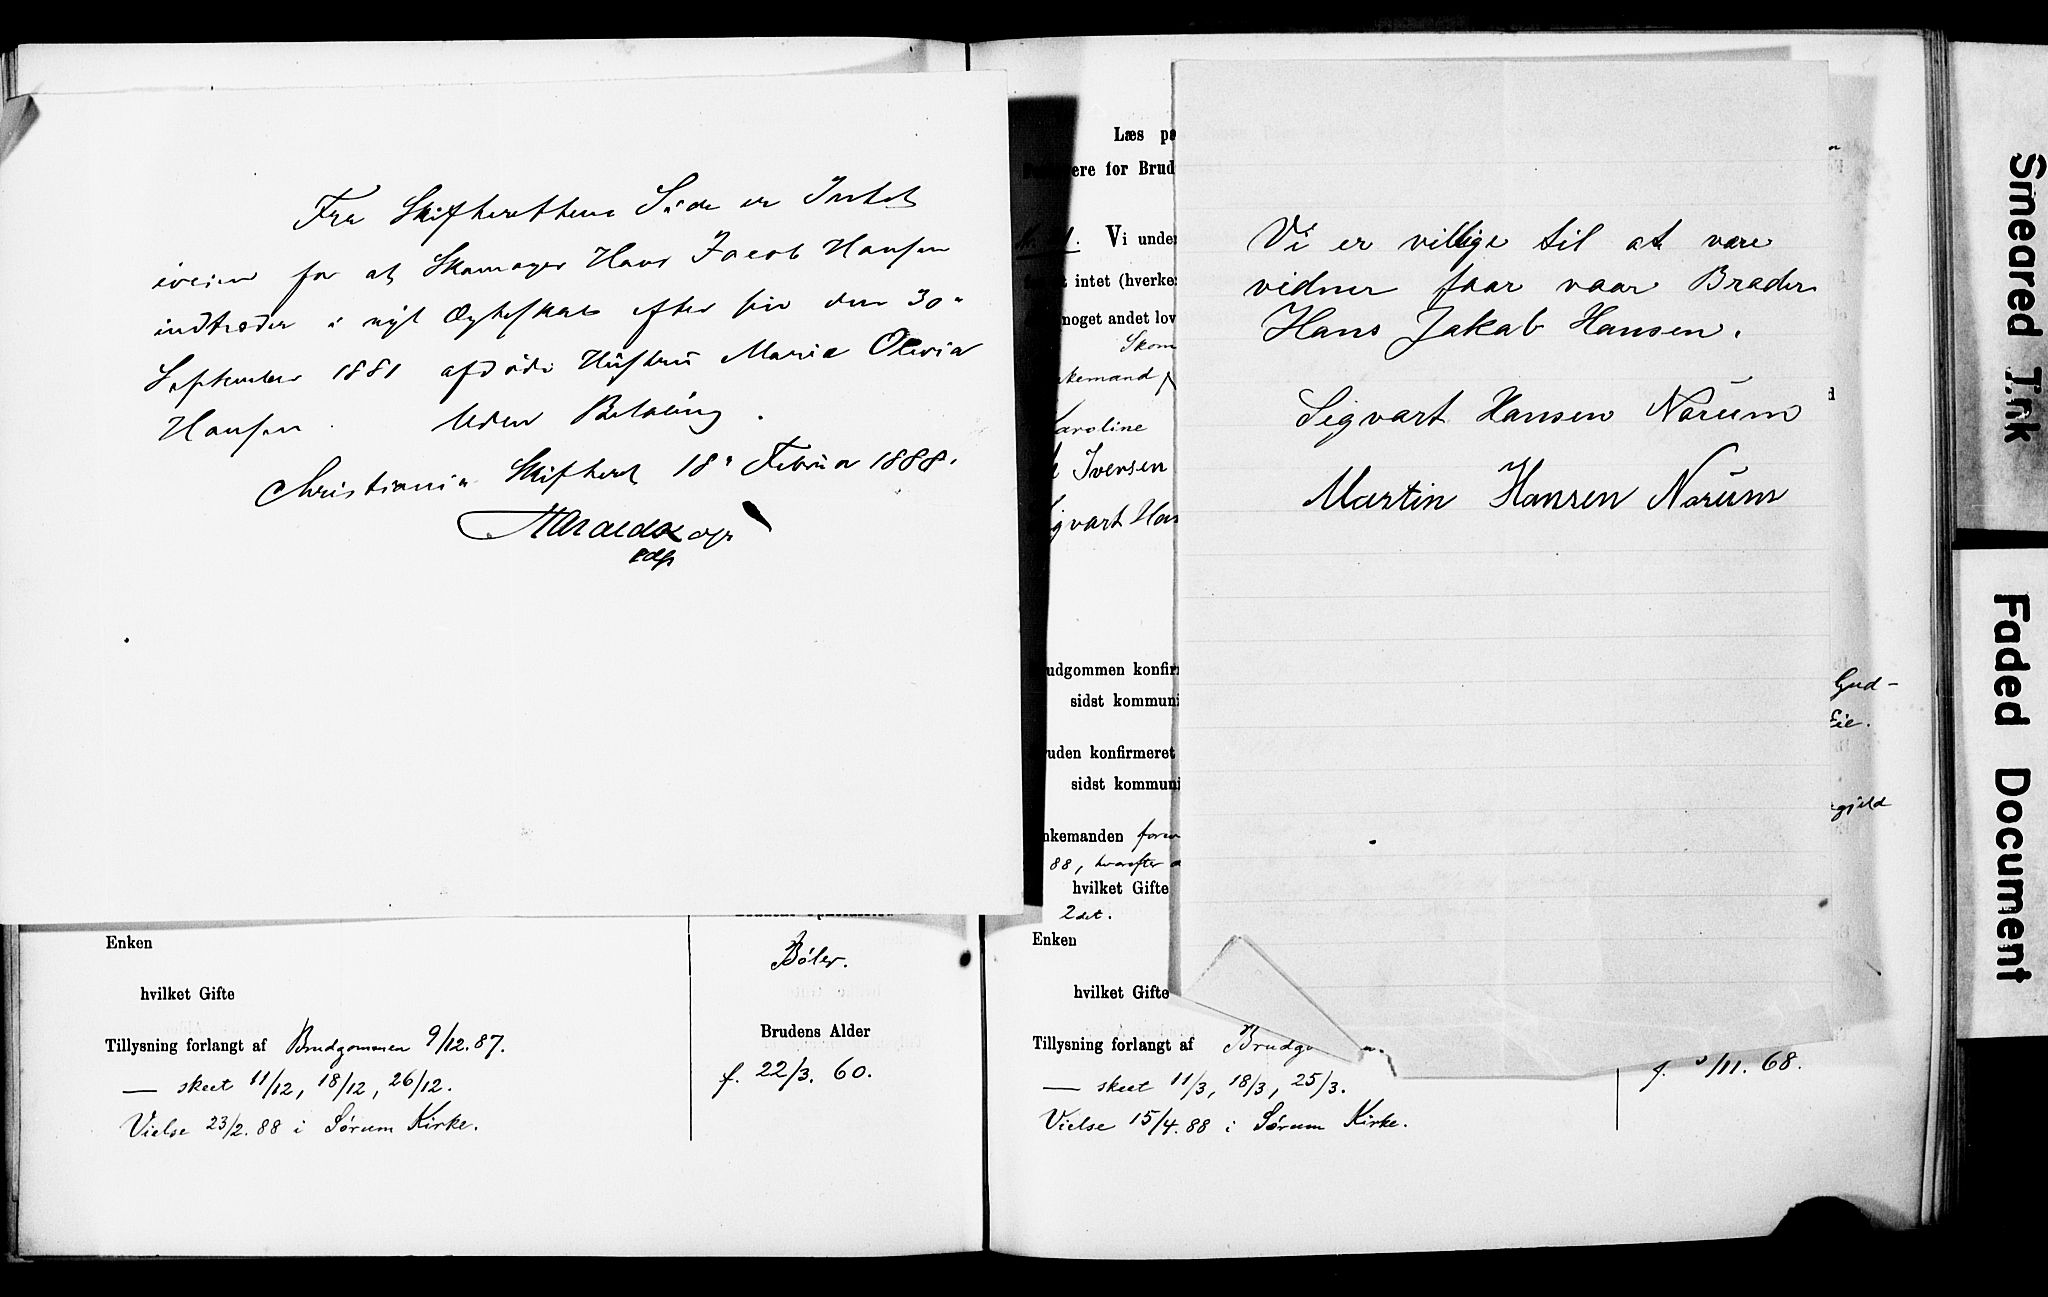 Fra Skifterettens Side er Intet
iveien for at Skomager Hans Jacob Hansen
indtræder i nyt Ægteskab efter sin den 30e
September 1881 afdøde Hustru Marie Olevia
Hansen. Uden Betaling.
Christiania Skifteret 18e Februar 1888.
Enken
hvilket Gifte
Tillysning forlangt af Brudgommen 9/12.87.
— skeet 11/12, 18/12, 26/12.
Vielse 23/2.88 i Sørum Kirke.
Bøler.
Brudens Alder
f. 22/3. 60.
Læs
ere for Brud
Vi under
intet (hverke
noget andet lov
Skom
kemand
aroline
Iversen
gvart Han
udgommen konfir
sidst kommuni
uden konfirmeret
sidst kommuni
nkemanden
88, hvorefter
hvilket Gifte
2det.
Enken
hvilket Gifte
Tillysning forlangt af Brudgo
— skeet 11/3, 18/3, 25/3.
Vielse 15/4.88 i Sørum Kirke.
Vi er villige til at være
vidner faar vaar Brader
Hans Jakab Hansen.
Sigvart Hansen Norum
Martin Hansen Norum
Gud-
Eie.
gjeld
f. /11. 68.
Smeared T.nk
Faded Document